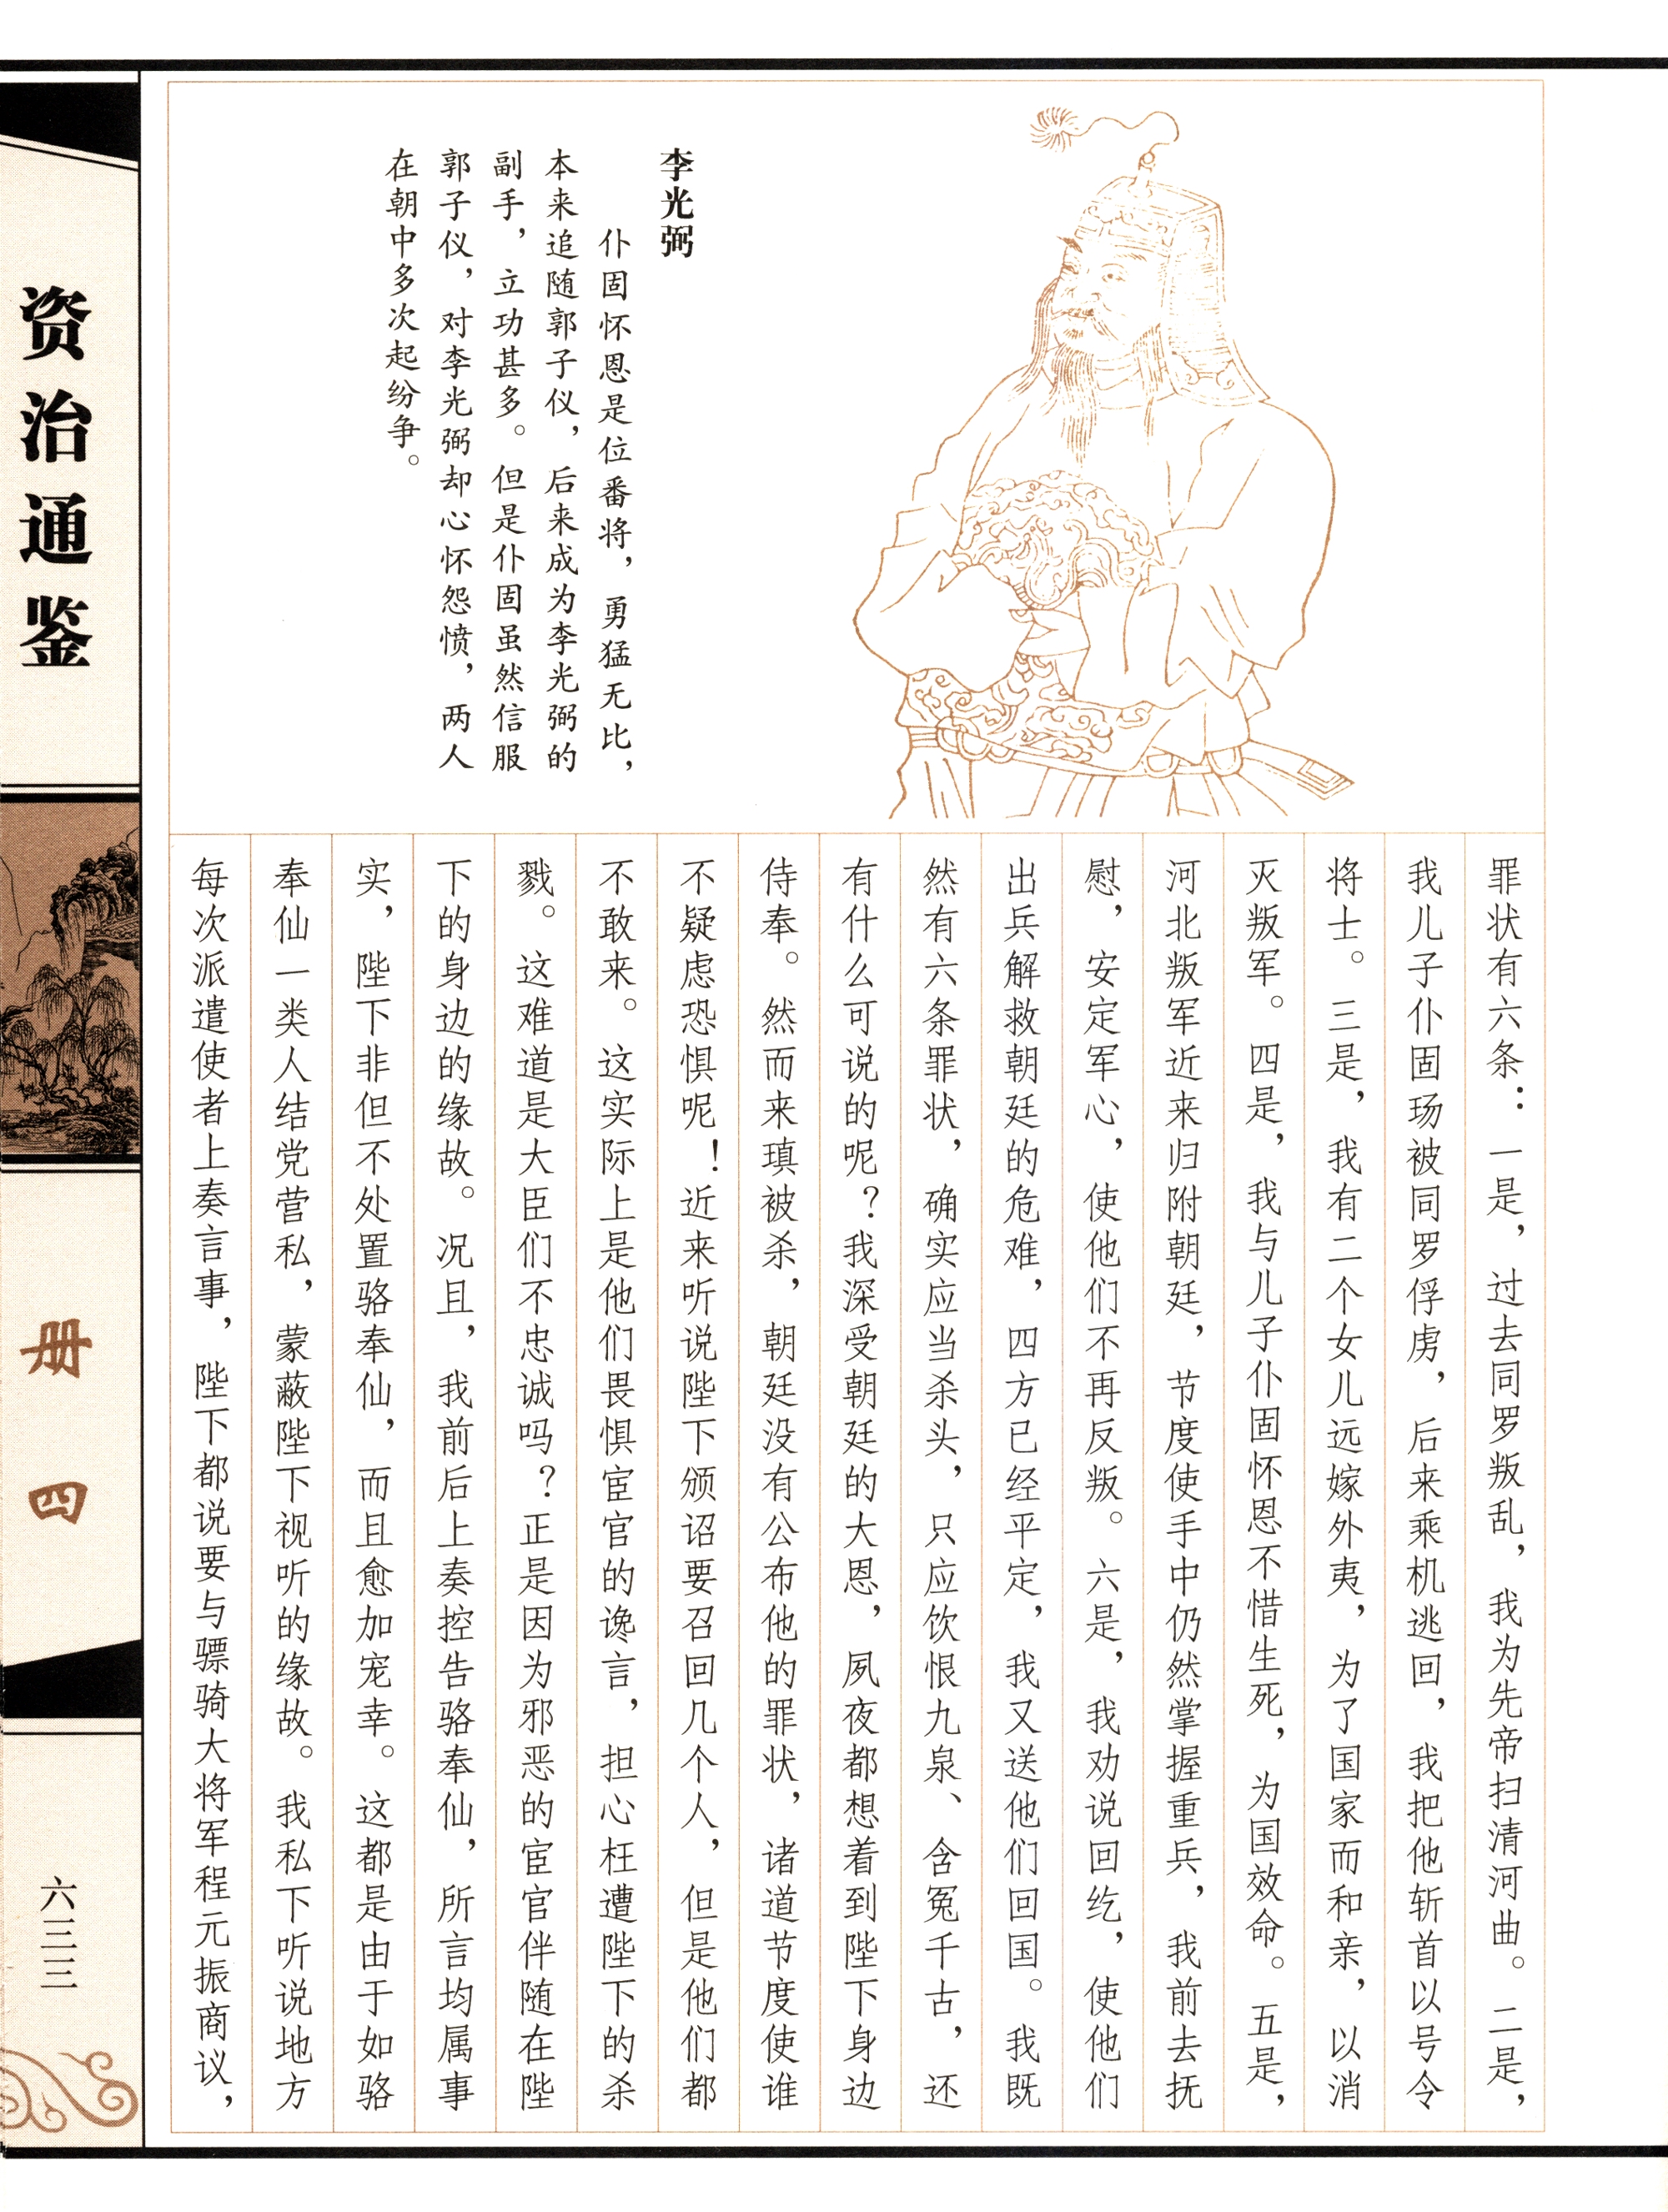 李光弼
仆固怀恩是位番将，勇猛无比，
本来追随郭子仪，后来成为李光弼的
副手，立功甚多。但是仆固虽然信服
郭子仪，对李光弼却心怀怨愤，两人
在朝中多次起纷争。
罪状有六条：一是，过去同罗叛乱，我为先帝扫清河曲。二是，
我儿子仆固玚被同罗俘虏，后来乘机逃回，我把他斩首以号令
将士。三是，我有二个女儿远嫁外夷，为了国家而和亲，以消
灭叛军。四是，我与儿子仆固怀恩不惜生死，为国效命。五是，
河北叛军近来归附朝廷，节度使手中仍然掌握重兵，我前去抚
慰，安定军心，使他们不再反叛。六是，我劝说回纥，使他们
出兵解救朝廷的危难，四方已经平定，我又送他们回国。我既
然有六条罪状，确实应当杀头，只应饮恨九泉、含冤千古，还
有什么可说的呢？我深受朝廷的大恩，夙夜都想着到陛下身边
侍奉。然而来瑱被杀，朝廷没有公布他的罪状，诸道节度使谁
不疑虑恐惧呢！近来听说陛下颁诏要召回几个人，但是他们都
不敢来。这实际上是他们畏惧宦官的谗言，担心枉遭陛下的杀
戮。这难道是大臣们不忠诚吗？正是因为邪恶的宦官伴随在陛
下的身边的缘故。况且，我前后上奏控告骆奉仙，所言均属事
实，陛下非但不处置骆奉仙，而且愈加宠幸。这都是由于如骆
奉仙一类人结党营私，蒙蔽陛下视听的缘故。我私下听说地方
每次派遣使者上奏言事，陛下都说要与骠骑大将军程元振商议，
资治通鉴
册四
六三三